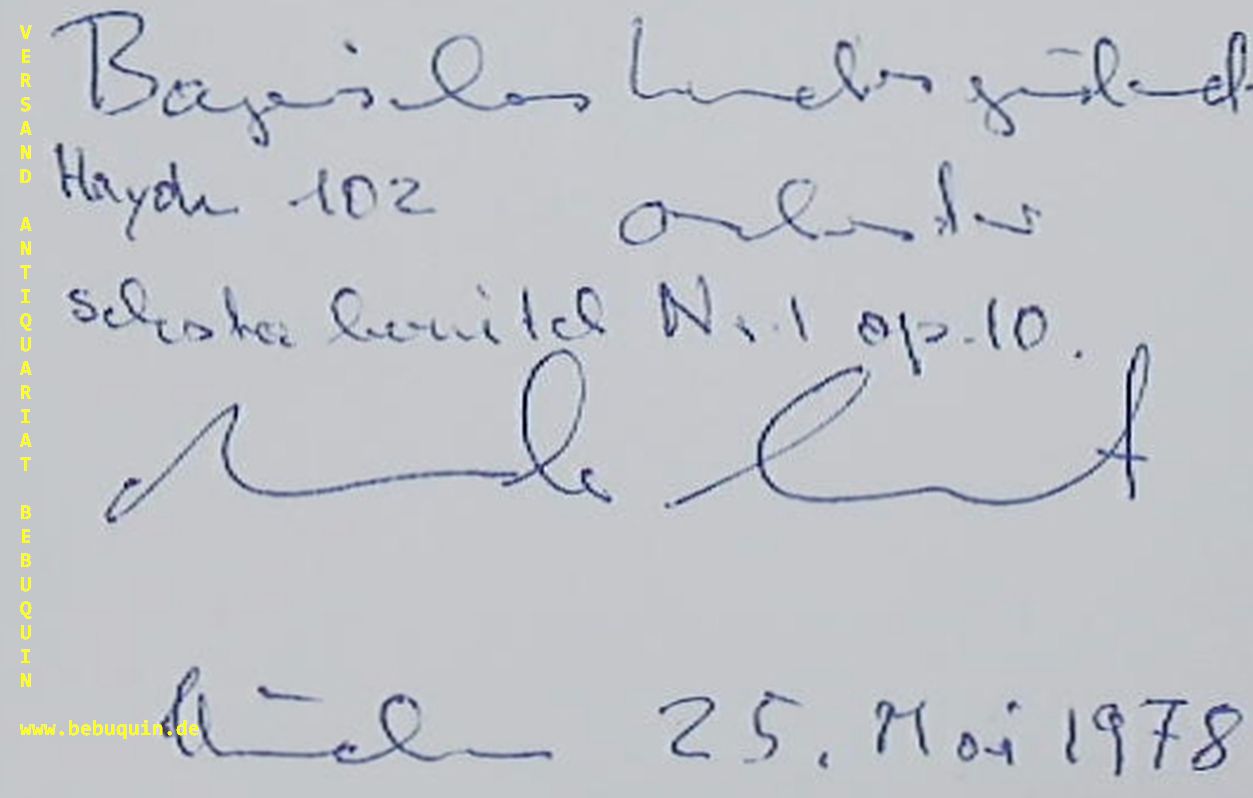 Bayerisches Landesjugend-
Haydn 102 orchester
Schostakowitch Nr. 1 op. 10.
München 25. Mai 1978
VERSAND ANTIQUARIAT BEBUQUIN
www.bebuquin.de